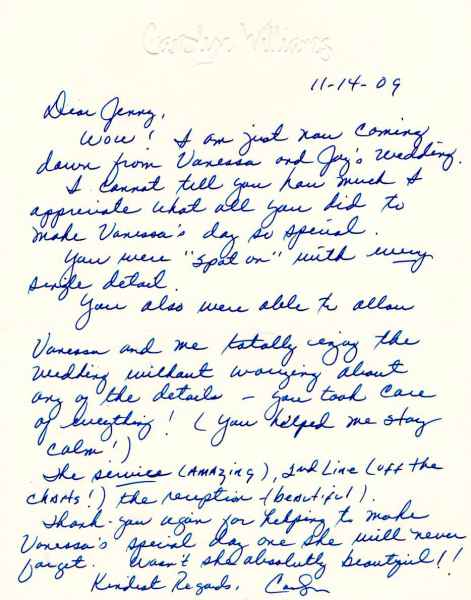 Carolyn Williams
11-14-09
Dear Jenny,
Wow! I am just now coming
down from Vanessa and Jay's wedding.
I cannot tell you how much I
appreciate what all you did to
make Vanessa's day so special.
You were "spot on" with every
single detail.
You also were able to allow
Vanessa and me totally enjoy the
wedding without worrying about
any of the details - you took care
of everything! (You helped me stay
calm!)
The service (AMAZING), 2nd Line (off the
CHARTS!) the reception (beautiful).
Thank-you again for helping to make
Vanessa's special day one she will never
forget. Wasn't she absolutly beautiful!!
Kindest Regards, Carolyn